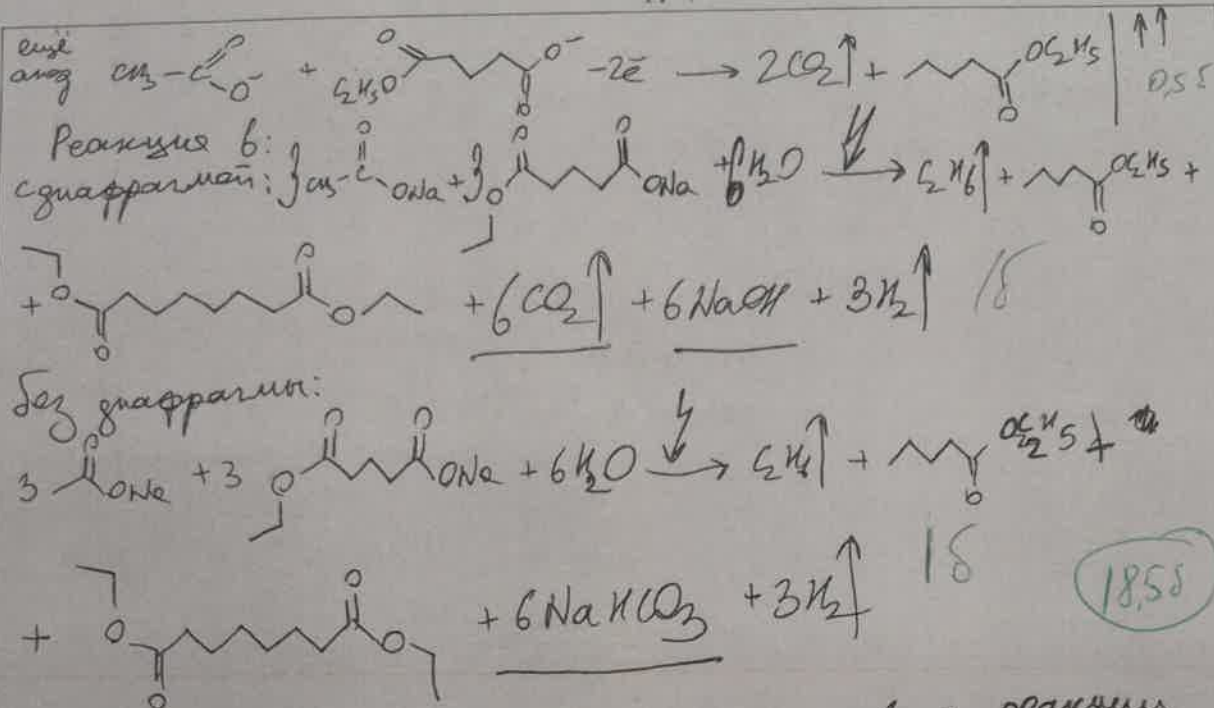 ещё
анод CH₃–C(=O)O⁻ + C₂H₅O O O⁻ O –2ē → 2CO₂↑ + OC₂H₅ O ↑↑
0,5б
Реакция 6:
с диафрагмой: 3 CH₃–C(=O)ONa + 3 O O O ONa + 6H₂O → C₂H₆↑ + OC₂H₅ O +
+ O O O O + 6CO₂↑ + 6NaOH + 3H₂↑ 1б
без диафрагмы:
3 O ONa + 3 O O O ONa + 6H₂O → C₂H₆↑ + OC₂H₅ O +
1б
18,5б
+ O O O O + 6NaHCO₃ + 3H₂↑